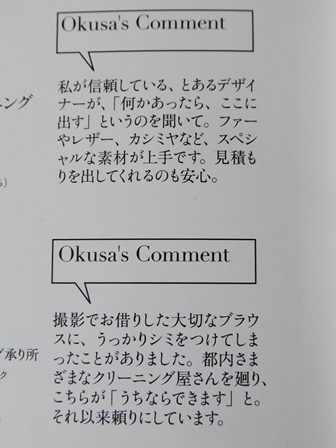 Okusa's Comment
私が信頼している、とあるデザイ
ナーが、「何かあったら、ここに
出す」というのを聞いて。ファー
やレザー、カシミヤなど、スペシ
ャルな素材が上手です。見積も
りを出してくれるのも安心。
ニング
Okusa's Comment
撮影でお借りした大切なブラウ
スに、うっかりシミをつけてしま
ったことがありました。都内さま
ざまなクリーニング屋さんを廻り、
こちらが「うちならできます」と。
それ以来頼りにしています。
承り所
ク